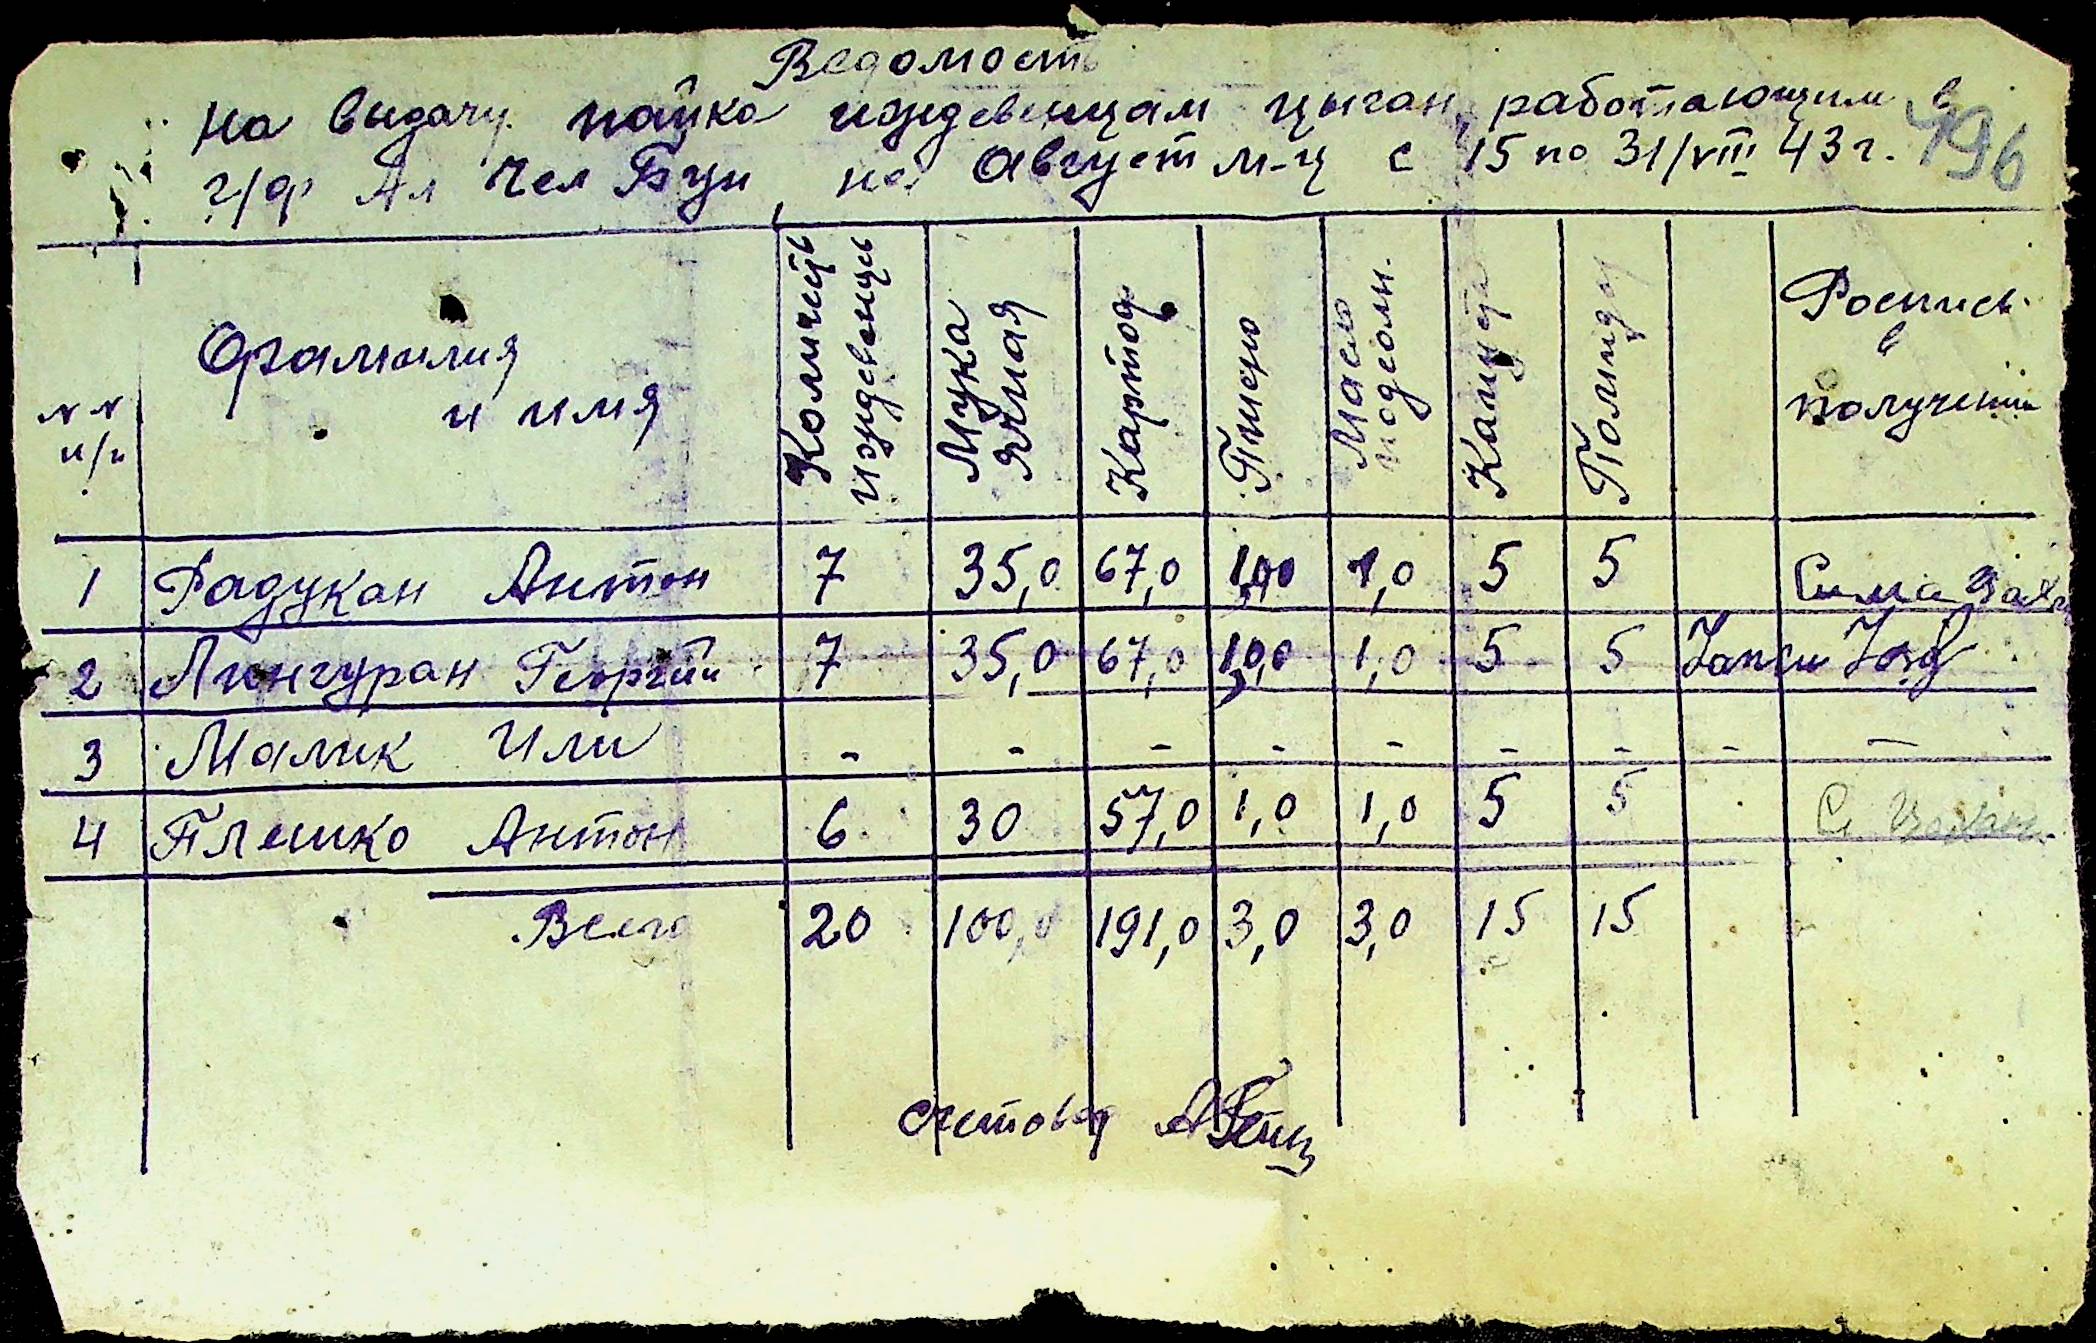 Ведомость
На выдачу пайка иждевенцам цыган, работающим в
г/ф Ал Чел Бун, на Август м-ц с 15 по 31/VIII 43 г.
196
NN п/п Фамилия и имя Количеств иждевенцев Мука ячная Картоф Пшено Масло подсолн. Капуста Помидор Роспись в получении
1 Радукан Антон 7 35,0 67,0 1,0 1,0 5 5 Сима
2 Лингуран Георгий 7 35,0 67,0 1,0 1,0 5 5
3 Малик Или - - - - - - - - -
4 Плешко Антон 6 30 57,0 1,0 1,0 5 5
Всего 20 100,0 191,0 3,0 3,0 15 15
счетовод